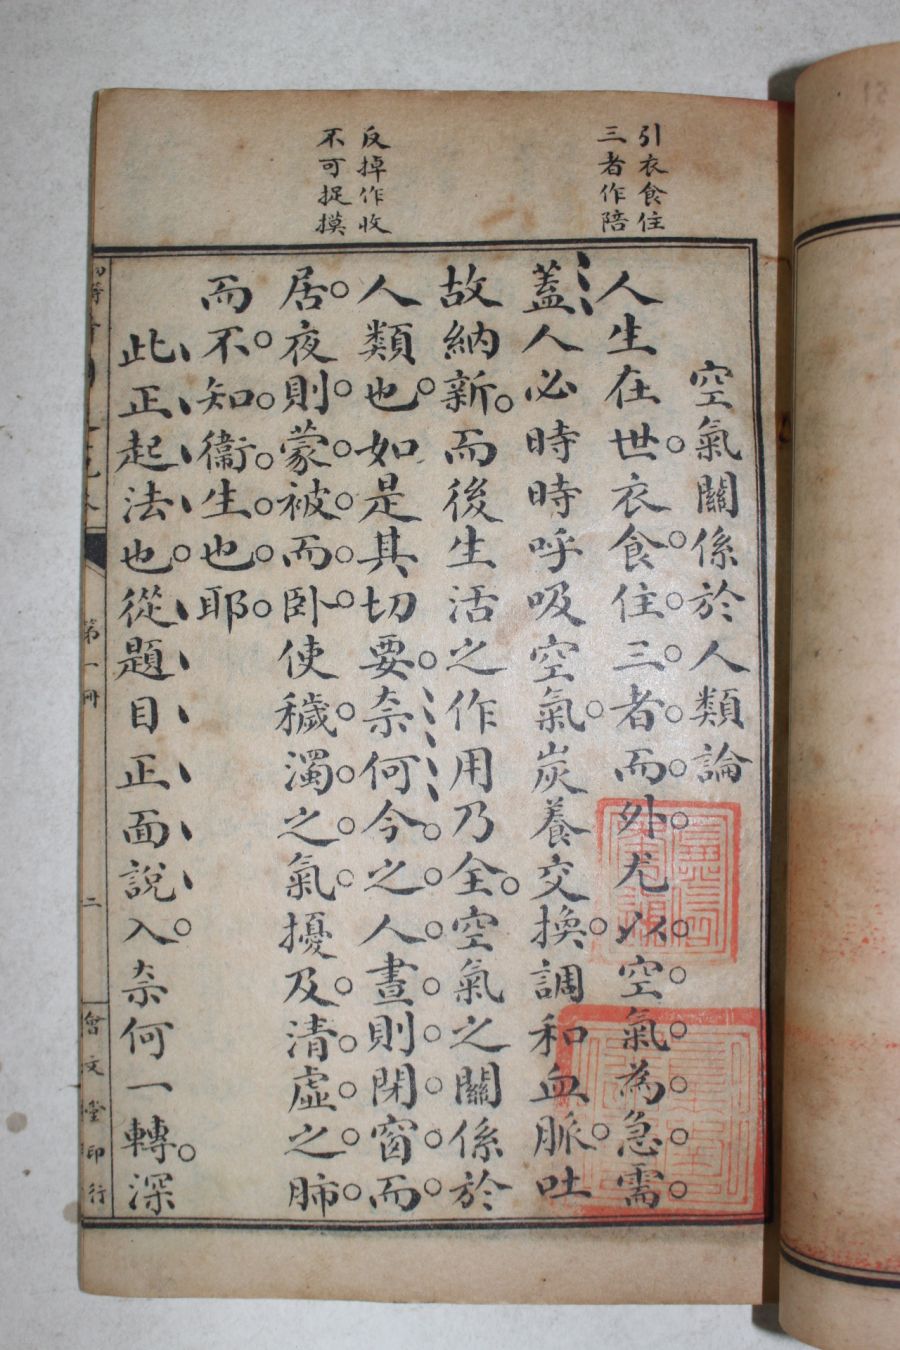 引衣食住
三者作陪
反掉作收
不可捉摸
空氣關係於人類論
人生在世衣食住三者而外尤以空氣為急需
蓋人必時時呼吸空氣炭養交換調和血脈吐
故納新而後生活之作用乃全空氣之關係於
人類也如是其切要奈何今之人晝則閉窗而
居夜則蒙被而卧使穢濁之氣擾及清虛之肺
而不知衞生也耶
此正起法也從題目正面說入奈何一轉深
第一冊
二
會文堂印行